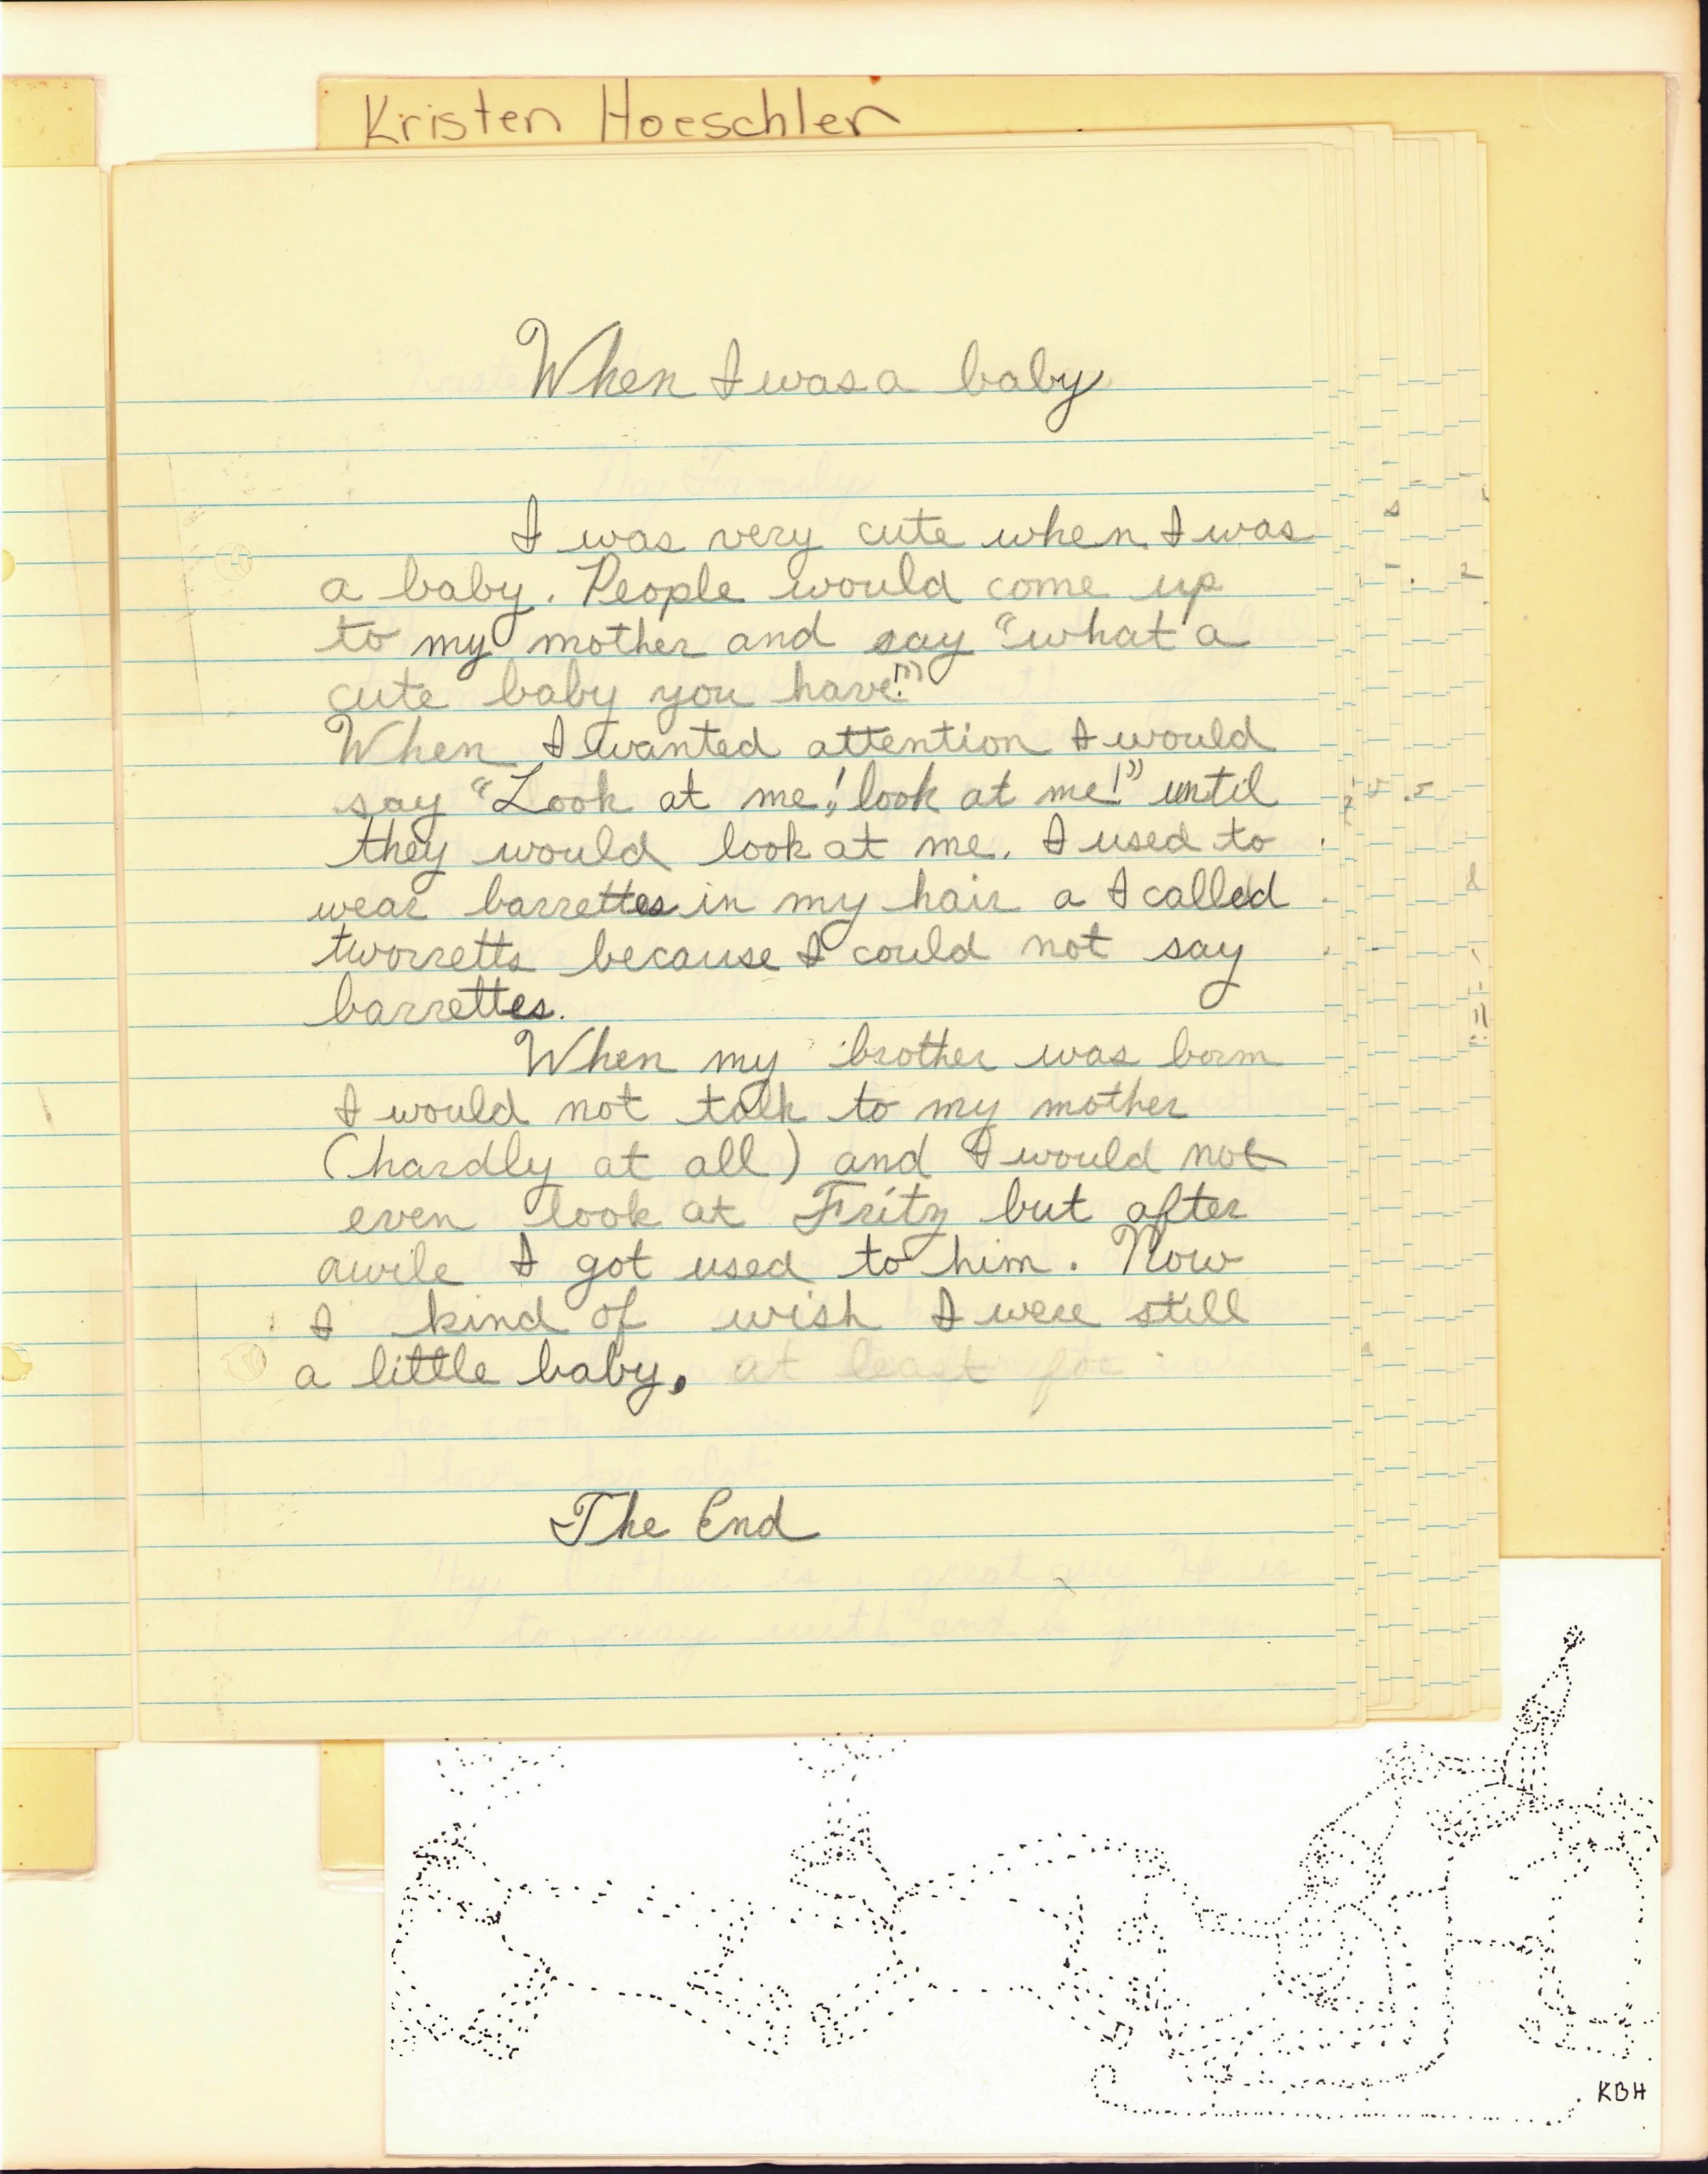 Kristen Hoeschler
When I was a baby
I was very cute when I was
a baby. People would come up
to my mother and say "what a
cute baby you have!"
When I wanted attention I would
say "Look at me! look at me!" until
they would look at me. I used to
wear barrettes in my hair a I called
tworretts because I could not say
barrettes.
When my brother was born
I would not talk to my mother
(hardly at all) and I would not
even look at Fritz but after
awile I got used to him. Now
I kind of wish I were still
a little baby. at least for
The End
KBH